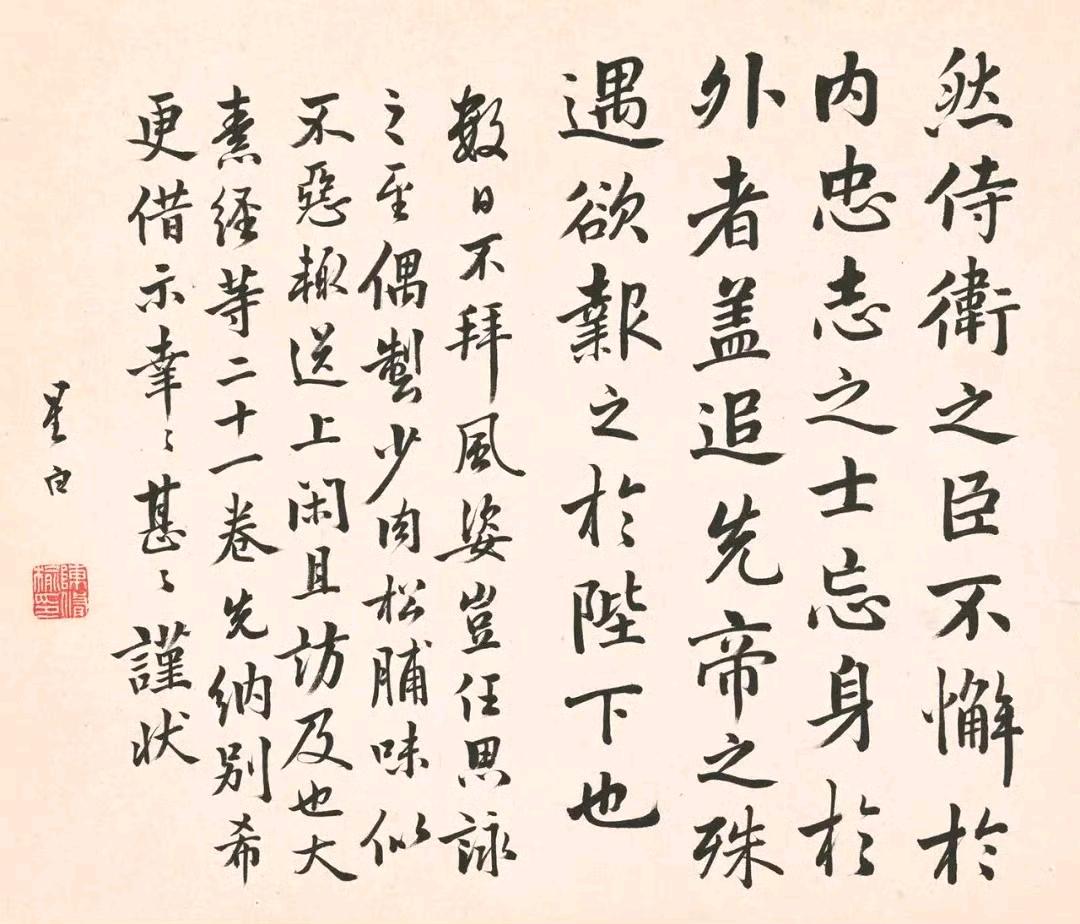 然侍衛之臣不懈於
内忠志之士忘身於
外者盖追先帝之殊
遇欲報之於陛下也
數日不拜風姿豈任思詠
之至偶製少肉松脯味似
不惡輙送上闲且訪及也大
素経等二十一卷先納别希
更借示幸〻甚〻謹状
星白